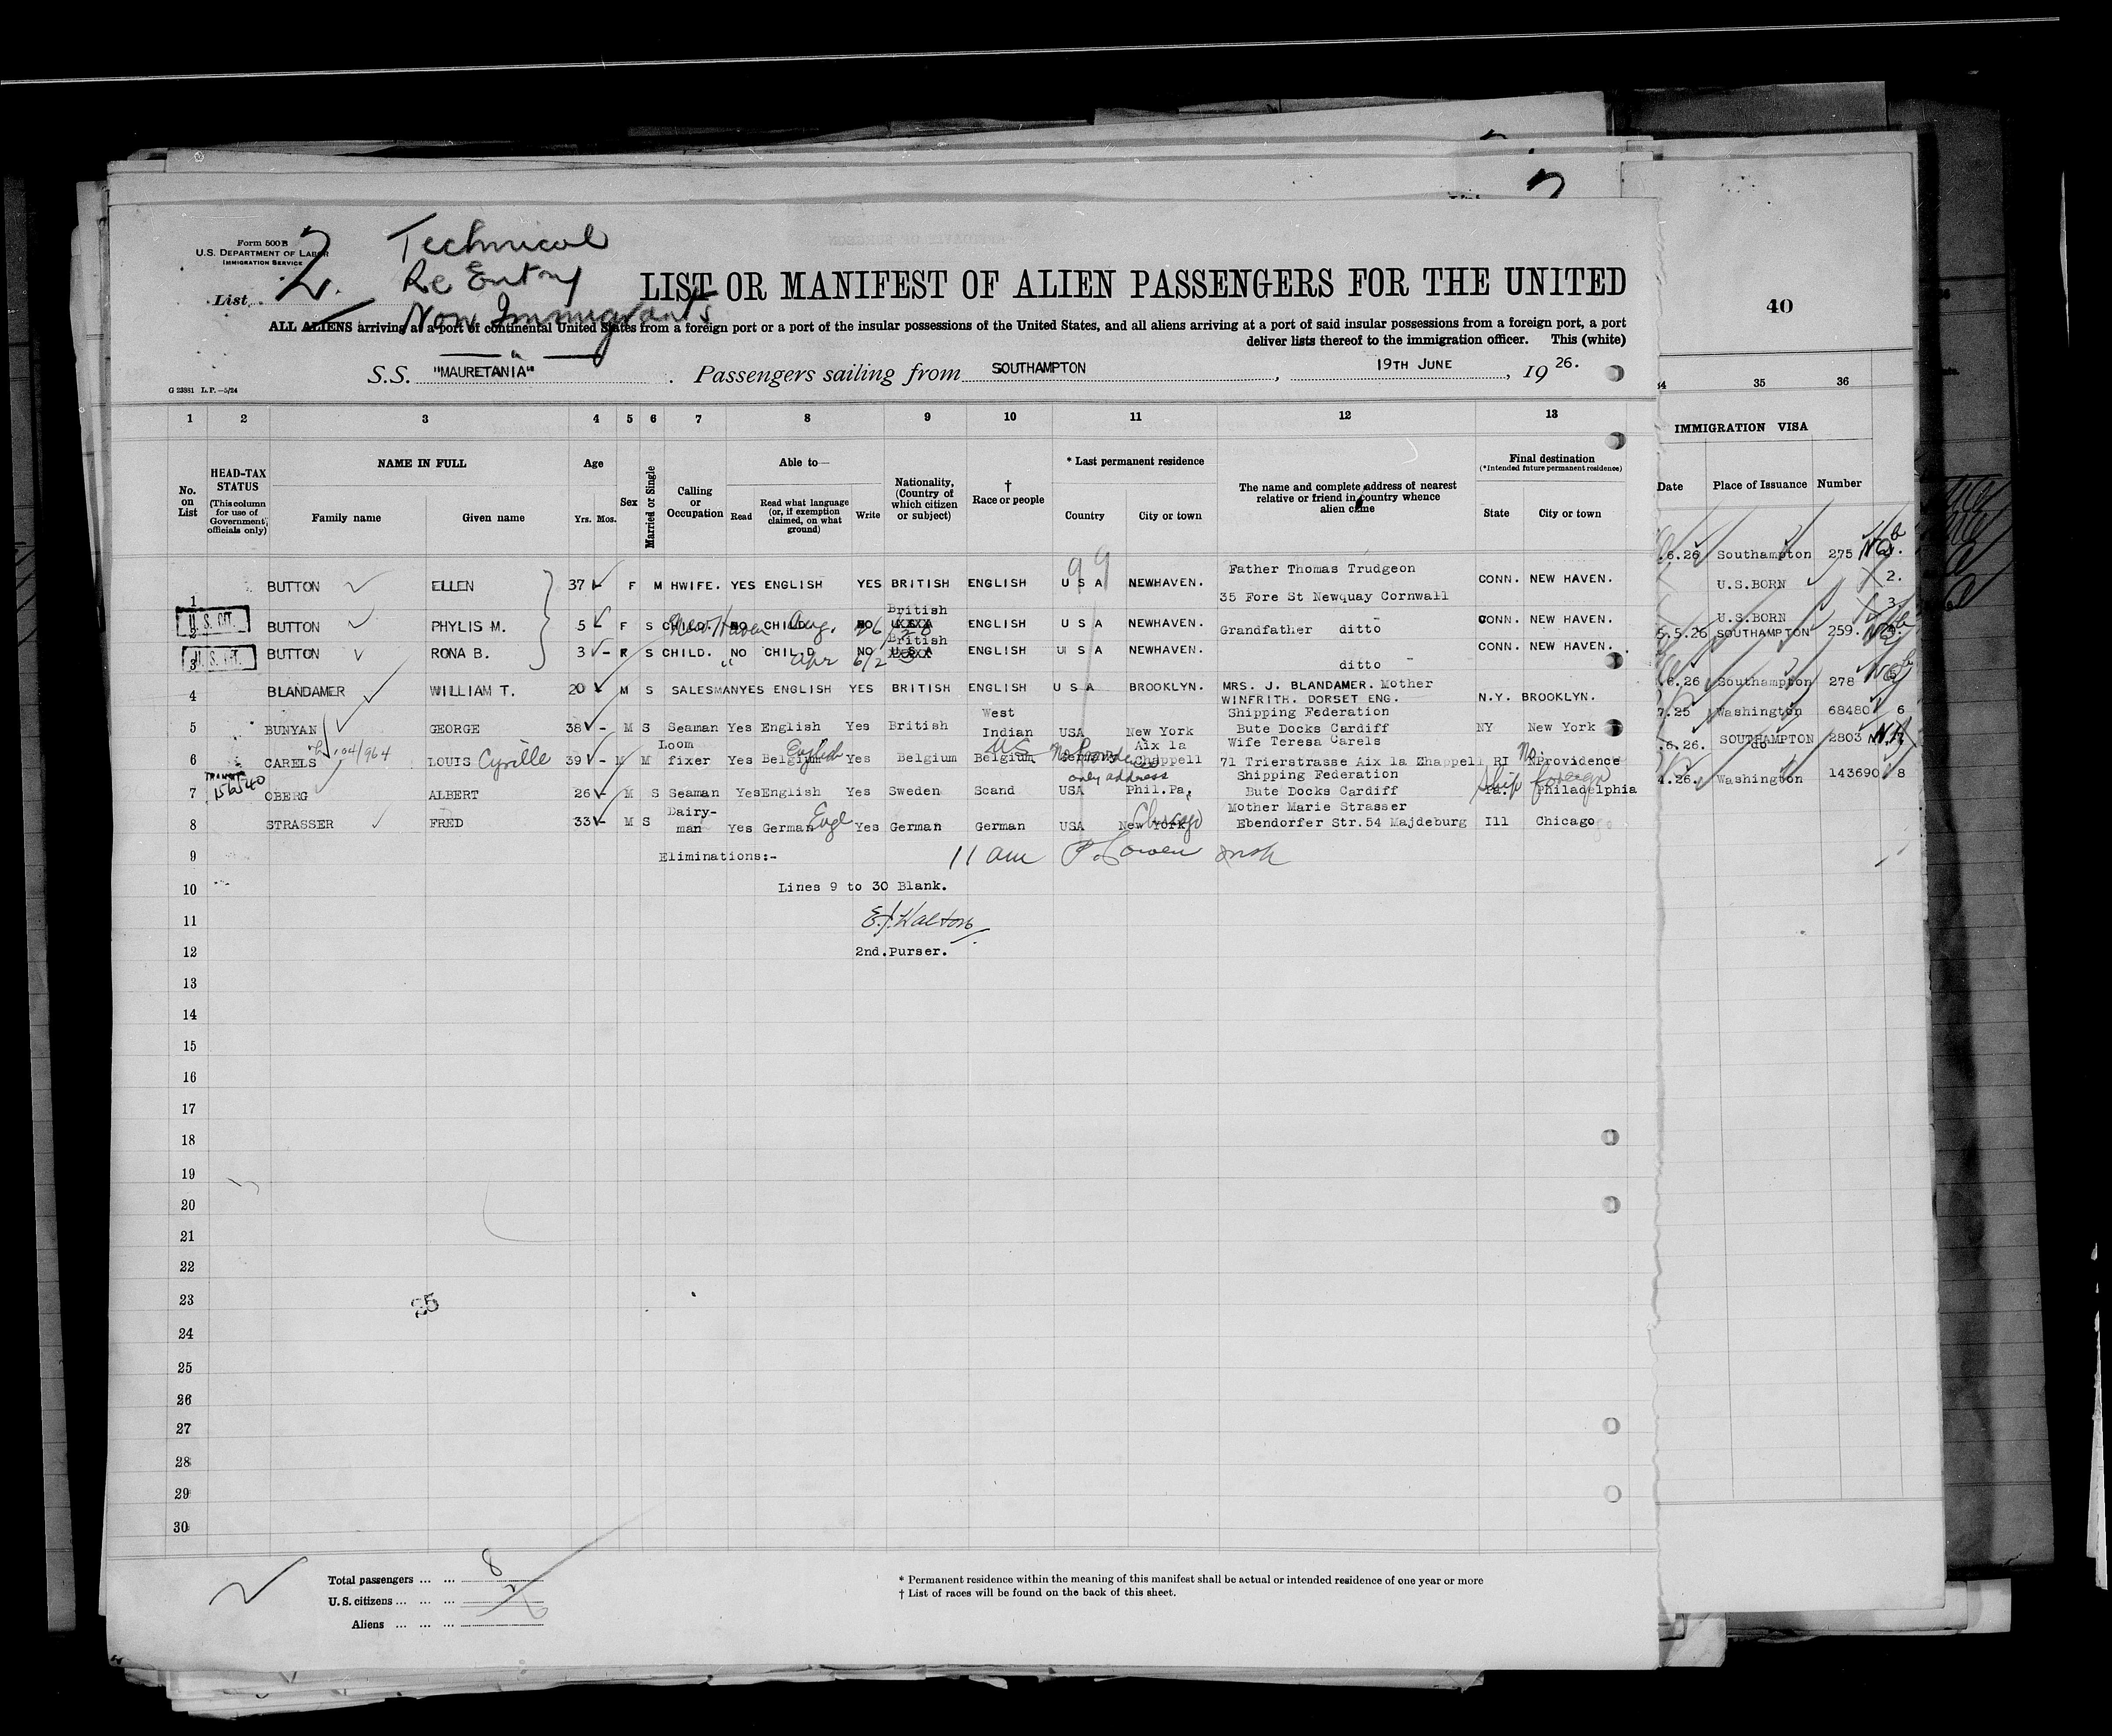 Form 500 B
U.S. DEPARTMENT OF LABOR
IMMIGRATION SERVICE
List 2.
Technical
Re Entry
Non Immigrants
LIST OR MANIFEST OF ALIEN PASSENGERS FOR THE UNITED
ALL ALIENS arriving at a port of continental United States from a foreign port or a port of the insular possessions of the United States, and all aliens arriving at a port of said insular possessions from a foreign port, a port
deliver lists thereof to the immigration officer. This (white)
S.S. "MAURETANIA" . Passengers sailing from SOUTHAMPTON , 19TH JUNE , 19 26.
G 23881 L.P.—5/24
40
1 2 3 4 5 6 7 8 9 10 11 12 13
35 36
IMMIGRATION VISA
Date Place of Issuance Number
No. on List
HEAD-TAX STATUS
(This column for use of Government officials only)
NAME IN FULL
Family name Given name
Age
Yrs. Mos.
Sex
Married or Single
Calling or Occupation
Able to—
Read
Read what language (or, if exemption claimed, on what ground)
Write
Nationality, (Country of which citizen or subject)
† Race or people
* Last permanent residence
Country City or town
The name and complete address of nearest relative or friend in country whence alien came
Final destination
(*Intended future permanent residence)
State City or town
99
1 BUTTON ELLEN 37 F M HWIFE. YES ENGLISH YES BRITISH ENGLISH U S A NEWHAVEN. Father Thomas Trudgeon
35 Fore St Newquay Cornwall CONN. NEW HAVEN. .6.26 Southampton 275
U. S. CIT. 2 BUTTON PHYLIS M. 5 F S CHILD. NO CHILD NO British ENGLISH U S A NEWHAVEN. Grandfather ditto CONN. NEW HAVEN. U.S.BORN 2.
New Haven Aug.
U. S. CIT. 3 BUTTON RONA B. 3 - F S CHILD. NO CHILD NO British U S A ENGLISH U S A NEWHAVEN. ditto CONN. NEW HAVEN. U.S.BORN 3.
" Apr
4 BLANDAMER WILLIAM T. 20 M S SALESMAN YES ENGLISH YES BRITISH ENGLISH U S A BROOKLYN. MRS. J. BLANDAMER. Mother
WINFRITH. DORSET ENG. N.Y. BROOKLYN. 5.5.26 SOUTHAMPTON 259.
5 BUNYAN GEORGE 38 - M S Seaman Yes English Yes British West Indian USA New York Shipping Federation
Bute Docks Cardiff NY New York .6.26 Southampton 278
104/964
6 CARELS LOUIS Cyrille 39 - M M Loom fixer Yes Belgium English Yes Belgium Belgium Germany Aix la Chappell Wife Teresa Carels
71 Trierstrasse Aix la Chappell RI Providence 7.25 Washington 68480 6
only address
TRANSIT
156/240
7 OBERG ALBERT 26 - M S Seaman Yes English Yes Sweden Scand USA Phil.Pa, Shipping Federation
Bute Docks Cardiff Pa. Philadelphia .6.26. SOUTHAMPTON do 2803
Ship foreign
8 STRASSER FRED 33 - M S Dairy-man Yes German Engl Yes German German USA New York Chicago Mother Marie Strasser
Ebendorfer Str.54 Majdeburg Ill Chicago 4.26. Washington 143690 8
9 Eliminations:- 11 am
10 Lines 9 to 30 Blank.
11 E.J. Walton
12 2nd.Purser.
13
14
15
16
17
18
19
20
21
22
23
25
24
25
26
27
28
29
30
Total passengers ... ... 8
U. S. citizens ... ... ... 2
Aliens ... ... ... 6
* Permanent residence within the meaning of this manifest shall be actual or intended residence of one year or more
† List of races will be found on the back of this sheet.